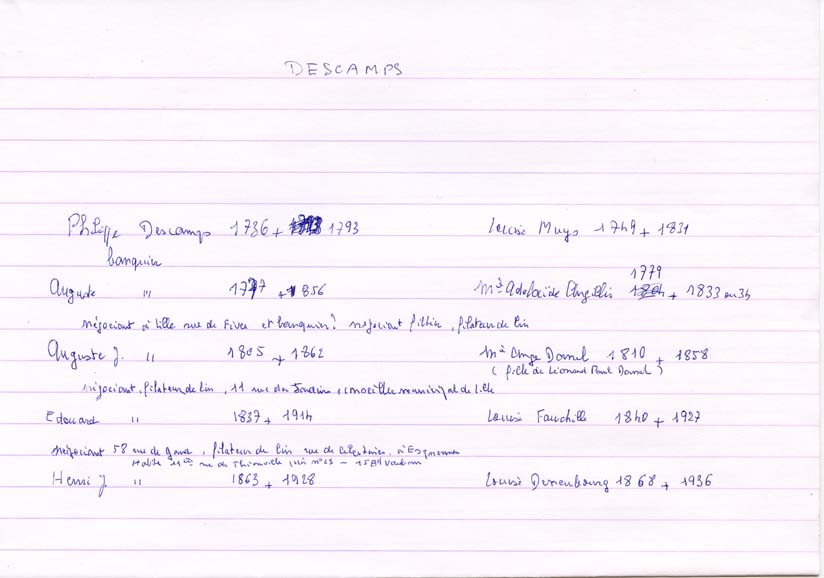 DESCAMPS
Philippe Descamps 1736 + 1793 Louise Muys 1749 + 1831
banquier
1779
Auguste " 1777 + 1856 Mie Adelaïde Angillis + 1833 ou 34
négociant à Lille rue de Fives et banquier? négociant filtier, filateur de lin
Auguste J. " 1805 + 1862 Mie Ange Danel 1810 + 1858
(fille de Léonard Paul Danel)
négociant, filateur de lin, 11 rue des Jardins, conseiller municipal de Lille
Edouard " 1837 + 1914 Louise Fauchille 1840 + 1927
négociant 58 rue de , filateur de lin rue de , à
Habite 11 rue de Thionville n° 23 - Bd Vauban
Henri J. " 1863 + 1928 Louise Derenbourg 1868 + 1936